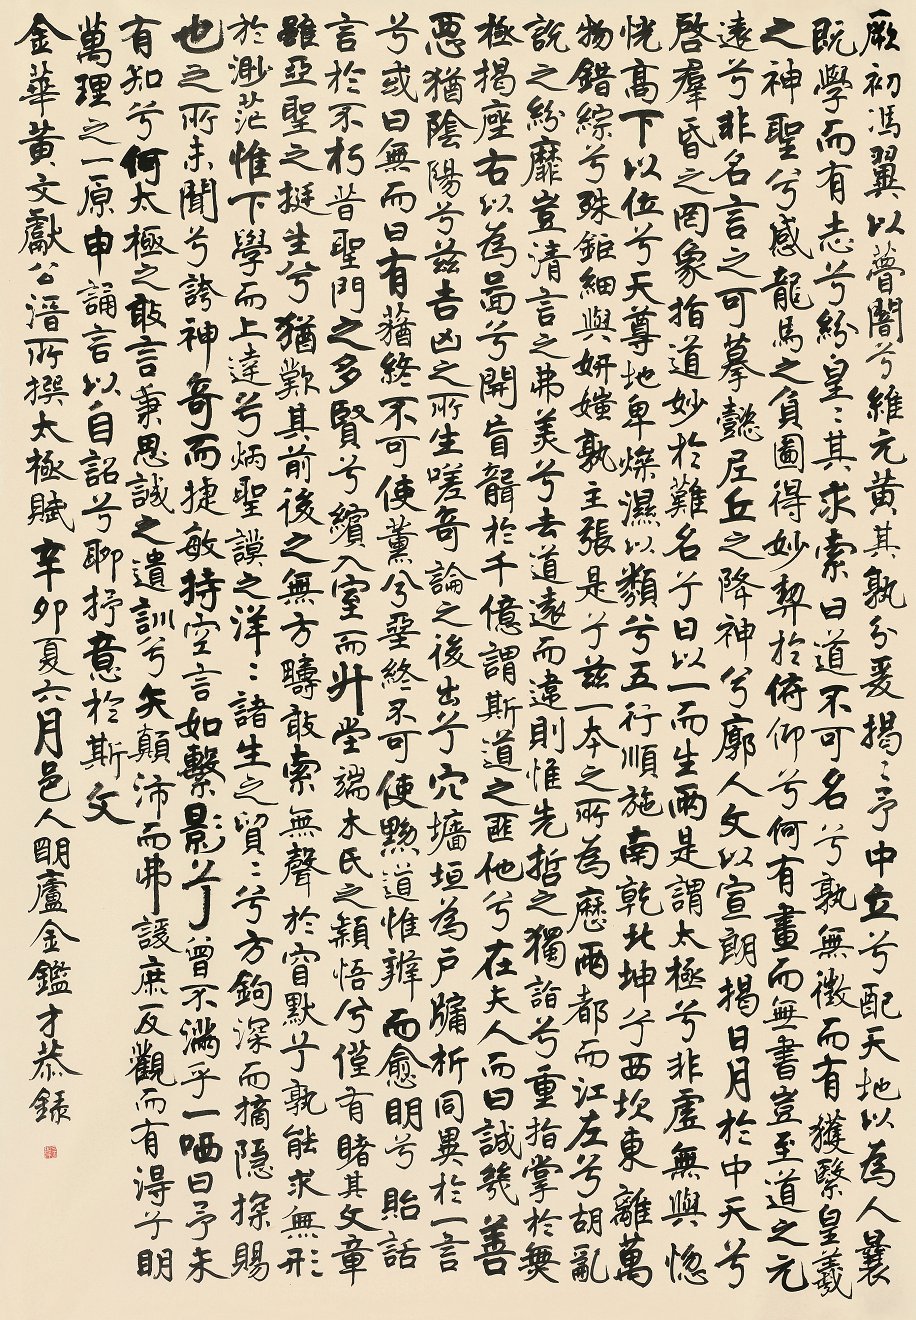 厥初馮翼以瞢闇兮維元黃其孰分爰揭揭予中立兮配天地以為人曩
既學而有志兮紛皇皇其求索曰道不可名兮孰無徵而有獲繄皇羲
之神聖兮感龍馬之負圖得妙契於俯仰兮何有畫而無書豈至道之元
遠兮非名言之可摹懿尼丘之降神兮廓人文以宣朗揭日月於中天兮
啓羣昏之罔象指道妙於難名兮曰以一而生兩是謂太極兮非虛無與惚
恍高下以位兮天尊地卑燥濕以類兮五行順施南乾北坤兮西坎東離萬
物錯綜兮殊鉅細與妍媸孰主張是兮茲一本之所為歷兩都而江左兮胡亂
說之紛靡豈清言之弗美兮去道遠而違則惟先哲之獨詣兮重指掌於無
極揭座右以為啚兮開盲聾於千億謂斯道之匪他兮在夫人而曰誠幾善
惡猶陰陽兮茲吉凶之所生嗟奇論之後出兮穴墻垣為戶牖析同異於一言
兮或曰無而曰有蕕終不可使薰兮堊終不可使黝道惟辨而愈明兮貽話
言於不朽昔聖門之多賢兮繽入室而升堂端木氏之穎悟兮僅有睹其文章
雖亞聖之挺生兮猶歎其前後之無方疇敢索無聲於窅默兮孰能求無形
於渺茫惟下學而上達兮炳聖謨之洋洋諸生之貿貿兮方鉤深而摘隱探賜
也之所未聞兮誇神奇而捷敏持空言如繫影兮曾不滿乎一哂曰予未
有知兮何太極之敢言秉思誠之遺訓兮矢顛沛而弗諼庶反觀而有得兮明
萬理之一原申誦言以自詔兮聊抒意於斯文
金華黃文獻公溍所撰太極賦辛卯夏六月邑人明廬金鑑才恭錄